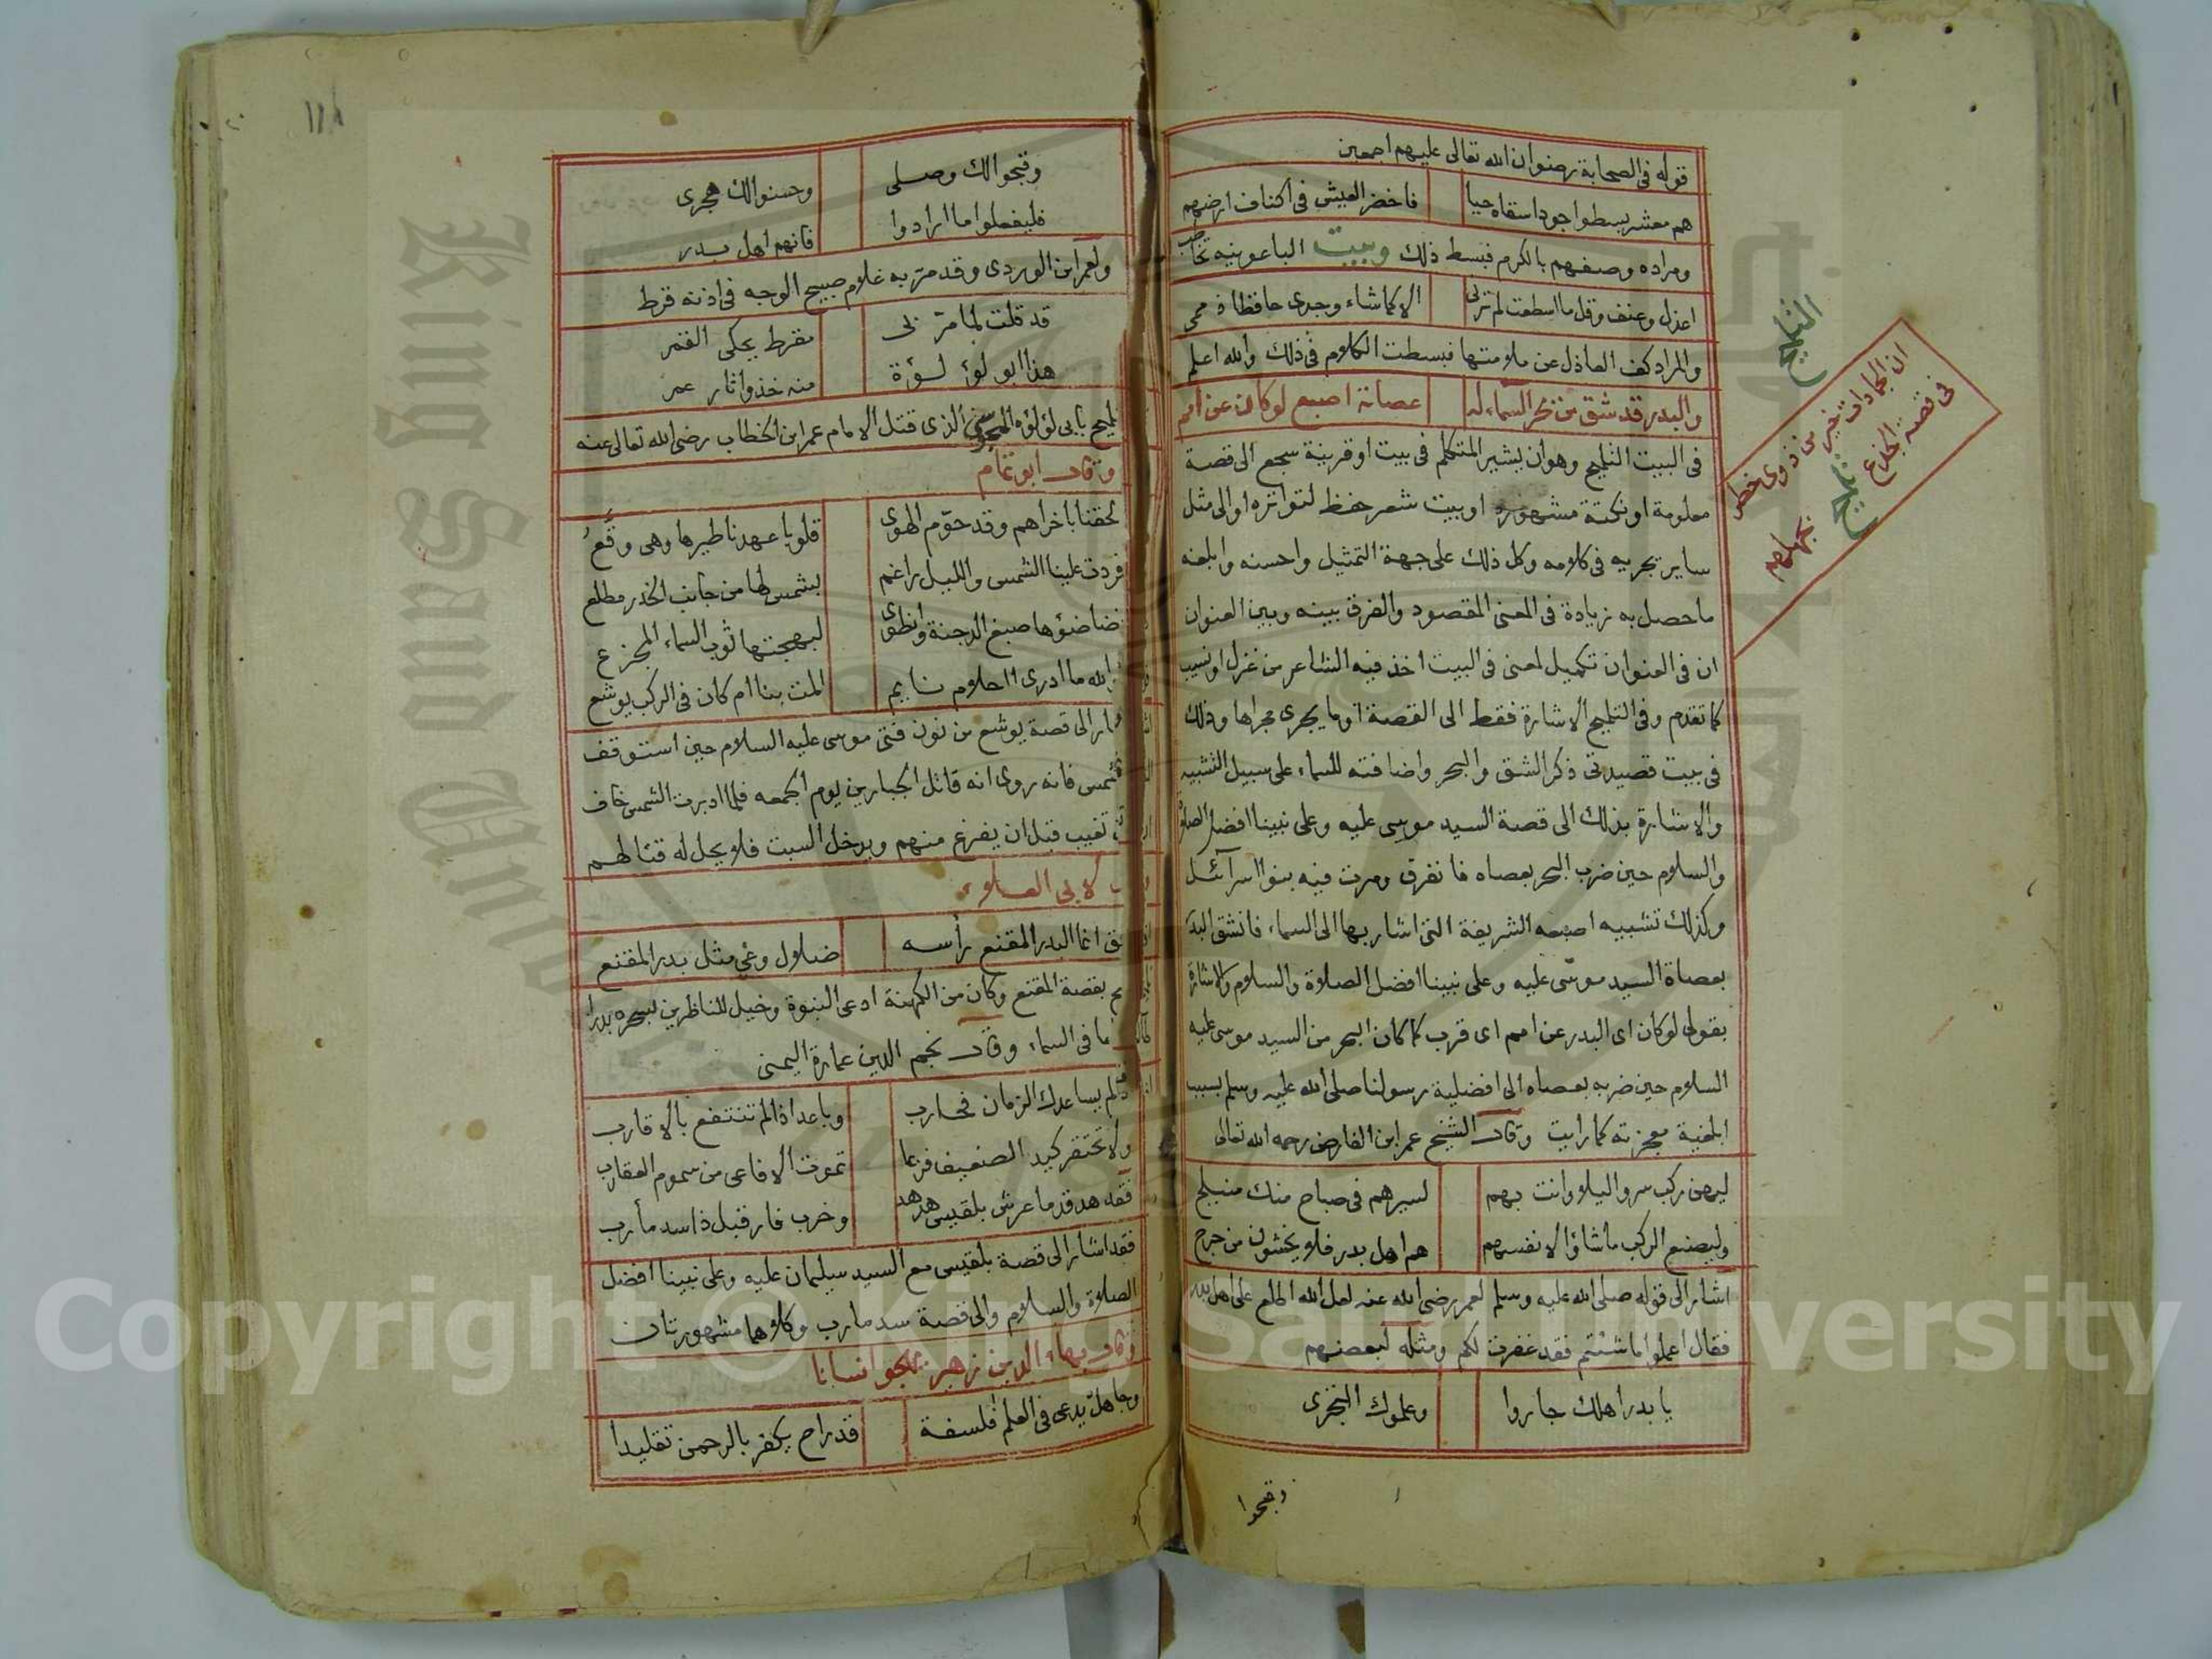 قوله في الصحابة رضوان الله تعالى عليهم اجمعين
هم معشر بسطوا جودا سقاه حيا فاخضر العيش في اكناف ارضهم
ومراده وصفهم بالكرم فبسط ذلك وبيت الباعونيه تخاطب
اعذل وعنف وقل ما اسطعت لم ترني الا كما شاء وجدى حافظا ذممي
والمراد كف العاذل عن ملامتها فبسطت الكلام في ذلك والله اعلم
والبدر قد شق من بحر السماء له عصاته اصبع لو كان عن امم
في البيت التلميح وهو ان يشير المتكلم في بيت او قرينة سجع الى قصة
معلومة او نكتة مشهوره او بيت شعر حفظ لتواتره او الى مثل
ساير يجريه في كلامه وكل ذلك على جهة التمثيل واحسنه وابلغه
ما حصل به زيادة في المعنى المقصود والفرق بينه وبين العنوان
ان في العنوان تكميل لمعنى في البيت اخذ فيه الشاعر من غزل او نسيب
كما تقدم وفي التلميح الاشارة فقط الى القصة او ما يجرى مجراها وذلك
في بيت قصيدتى ذكر الشق والبحر واضافته للسماء على سبيل التشبيه
والاشارة بذلك الى قصة السيد موسى عليه وعلى نبينا افضل الصلاة
والسلام حين ضرب البحر بعصاه فانفرق ومرت فيه بنوا اسرآئيل
وكذلك تشبيه اصبعه الشريفة التى اشار بها الى السماء فانشق البدر
بعصاة السيد موسى عليه وعلى نبينا افضل الصلاة والسلام والاشارة
بقولى لو كان اى البدر عن امم اى قرب كما كان البحر من السيد موسى عليه
السلام حين ضربه بعصاه الى افضلية رسولنا صلى الله عليه وسلم بسبب
ابلغية معجزته كما رايت وقال الشيخ عمر ابن الفارض رحمه الله تعالى
ليهن ركب سروا ليلا وانت بهم لسيرهم في صباح منك منبلج
وليصنع الركب ما شاؤا لانفسهم هم اهل بدر فلا يخشون من حرج
اشار الى قوله صلى الله عليه وسلم لعمر رضى الله عنه لعل الله اطلع على اهل بدر
فقال اعملوا ما شئتم فقد غفرت لكم ومثله لبعضهم
يا بدر اهلك جاروا وعلموك التجرى
وقبحوا
التلميح
ان الجمادات خير من ذوى خطر
في قصة الجذع
تلميح
وقبحوا لك وصلى وحسنوا لك هجرى
فليفعلوا ما ارادوا فانهم اهل بدر
ولعمر ابن الوردى وقد مر به غلام صبيح الوجه في اذنه قرط
قد قلت لما مر بى مقرط يحكى القمر
هذا ابو لؤلؤة منه خذوا ثار عمر
يلمح بابى لؤلؤه المجوسى الذى قتل الامام عمر ابن الخطاب رضى الله تعالى عنه
وقال ابو تمام
لحقنا باخراهم وقد حوم الهوى قلوبا عهدنا طيرها وهى وقع
فردت علينا الشمس والليل راغم بشمس لها من جانب الخدر مطلع
نضا ضوؤها صبغ الدجنة وانطوى لبهجتها ثوب السماء المجزع
فوالله ما ادرى ااحلام نايم المت بنا ام كان في الركب يوشع
اشار الى قصة يوشع بن نون فتى موسى عليه السلام حين استوقف
الشمس فانه روى انه قاتل الجبارين يوم الجمعه فلما ادبرت الشمس خاف
ان تغيب قبل ان يفرغ منهم ويدخل السبت فلا يحل له قتالهم
لابى العلاء
افق انما البدر المقنع رأسه ضلال وغى مثل بدر المقنع
بقصة المقنع وكان من الكهنة ادعى النبوة وخيل للناظرين بسحره بدرا
ما في السماء وقال نجم الدين عمارة اليمنى
اذا لم يساعدك الزمان فحارب وباعد اذا لم تنتفع بالاقارب
ولا تحتقر كيد الضعيف فربما تموت الافاعى من سموم العقارب
فقد هد قدما عرش بلقيس هدهد وخرب فار قبل ذا سد مأرب
فقد اشار الى قصة بلقيس مع السيد سليمان عليه وعلى نبينا افضل
الصلاة والسلام والى قصة سد مارب وكلاهما مشهورتان
وقال بهاء الدين زهير يهجو انسانا
وجاهل يدعى في العلم فلسفة قد راح يكفر بالرحمن تقليدا
Copyright © King Saud University
King Saud University